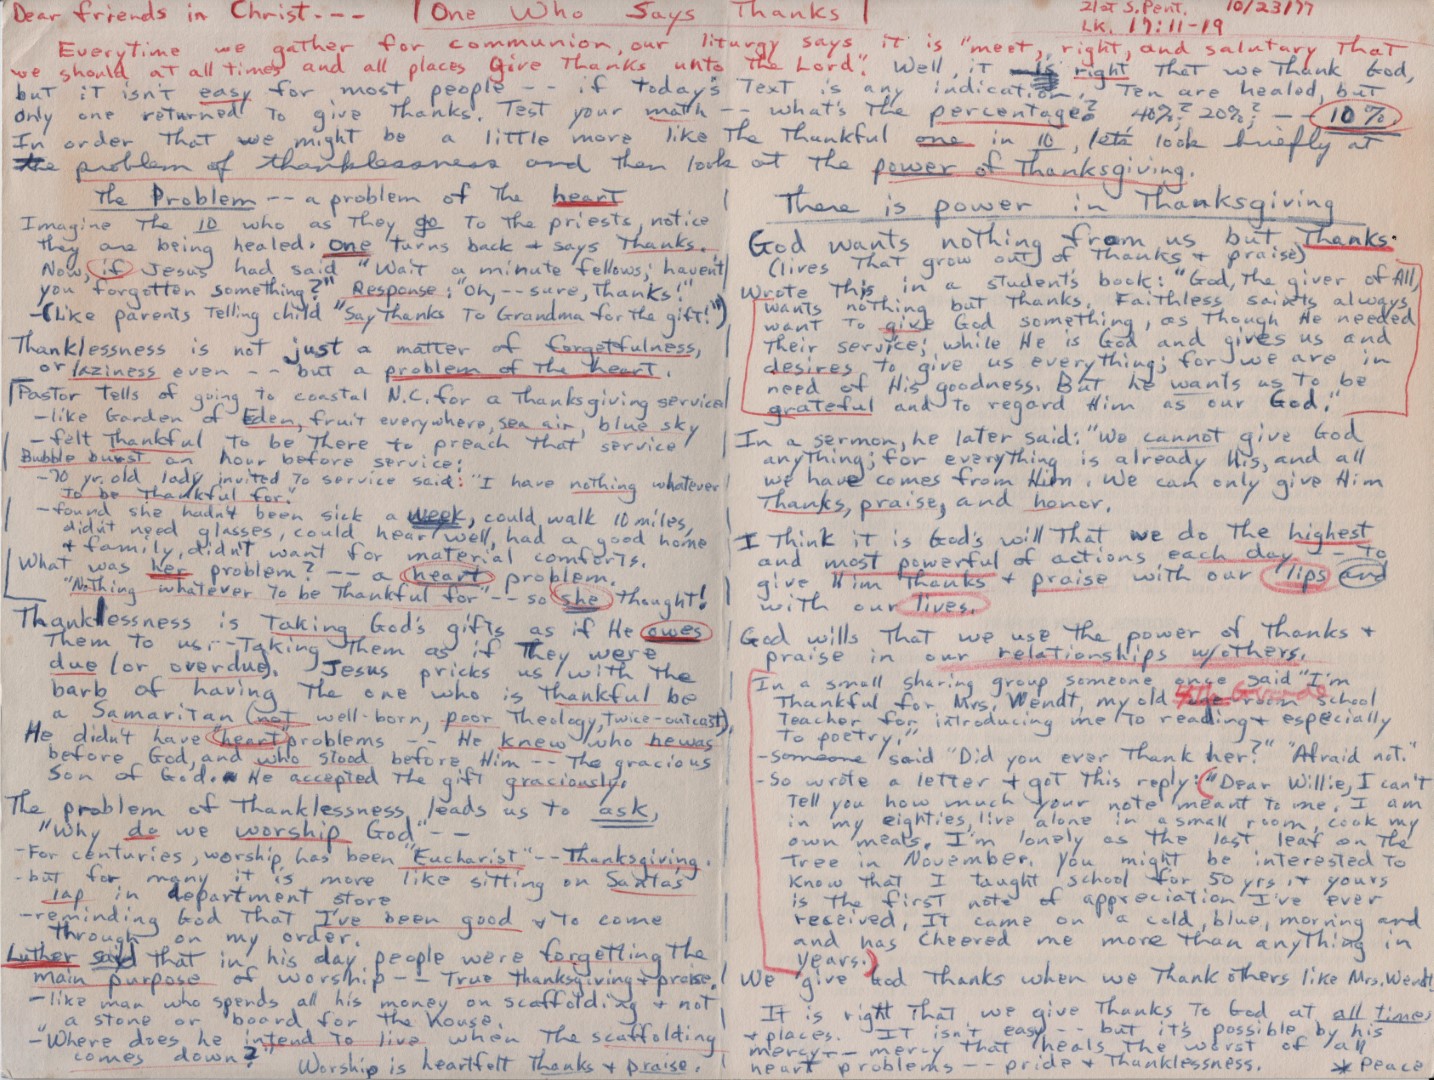 Dear friends in Christ---
One Who Says Thanks
21st S. Pent. 10/23/77
Lk. 17:11-19
Everytime we gather for communion, our liturgy says it is "meet, right, and salutary that
we should at all times and all places give thanks unto the Lord". Well, it is right that we thank God,
but it isn't easy for most people -- if today's Text is any indication. Ten are healed, but
only one returned to give thanks. Test your math -- what's the percentage? 40%? 20%? -- 10%.
In order that we might be a little more like the thankful one in 10, let's look briefly at
the problem of thanklessness and then look at the power of thanksgiving.
The Problem -- a problem of the heart
Imagine the 10 who as they go to the priests, notice
they are being healed. One turns back + says thanks.
Now, if Jesus had said "Wait a minute fellows, haven't
you forgotten something?" Response: "Oh, -- sure, thanks!"
-(Like parents telling child "Say thanks to Grandma for the gift!")
Thanklessness is not just a matter of forgetfulness,
or laziness even -- but a problem of the heart.
Pastor tells of going to coastal N.C. for a Thanksgiving service
-like Garden of Eden, fruit everywhere, sea air, blue sky
-felt thankful to be there to preach that service
Bubble burst an hour before service:
-70 yr. old lady invited to service said: "I have nothing whatever
to be thankful for."
-found she hadn't been sick a week, could walk 10 miles,
didn't need glasses, could hear well, had a good home
+ family, didn't want for material comforts.
What was her problem? -- a heart problem.
"Nothing whatever to be thankful for" -- so she thought!
Thanklessness is taking God's gifts as if He owes
them to us -- Taking them as if they were
due (or overdue). Jesus pricks us with the
barb of having the one who is thankful be
a Samaritan (not well-born, poor theology, twice-outcast).
He didn't have heart problems -- He knew who he was
before God, and who stood before Him -- the gracious
Son of God. He accepted the gift graciously.
The problem of thanklessness leads us to ask,
"Why do we worship God" --
-For centuries, worship has been "Eucharist" -- Thanksgiving.
-but for many it is more like sitting on Santa's
lap in department store
-reminding God that I've been good + to come
through on my order.
Luther said that in his day people were forgetting the
main purpose of worship -- True thanksgiving + praise.
-like man who spends all his money on scaffolding + not
a stone or board for the house.
-"Where does he intend to live when the scaffolding
comes down?" Worship is heartfelt thanks + praise.
There is power in Thanksgiving
God wants nothing from us but Thanks.
(lives that grow out of thanks + praise)
Wrote this in a student's book: "God, the giver of All,
wants nothing but thanks. Faithless saints always
want to give God something, as though He needed
their service; while He is God and gives us and
desires to give us everything; for we are in
need of His goodness. But he wants us to be
grateful and to regard Him as our God."
In a sermon, he later said: "We cannot give God
anything; for everything is already His, and all
we have comes from Him. We can only give Him
thanks, praise, and honor.
I think it is God's will that we do the highest
and most powerful of actions each day -- to
give Him thanks + praise with our lips and
with our lives.
God wills that we use the power of thanks +
praise in our relationships w/others.
In a small sharing group someone once said "I'm
thankful for Mrs. Wendt, my old 4th Grade school
teacher for introducing me to reading + especially
to poetry."
-someone said "Did you ever thank her?" "Afraid not."
-So wrote a letter + got this reply: "Dear Willie, I can't
tell you how much your note meant to me. I am
in my eighties, live alone in a small room, cook my
own meals. I'm lonely as the last leaf on the
tree in November. You might be interested to
know that I taught school for 50 yrs. + yours
is the first note of appreciation I've ever
received. It came on a cold, blue, morning and
and has cheered me more than anything in
years."
We give God thanks when we thank others like Mrs. Wendt
It is right that we give thanks to God at all times
+ places. It isn't easy -- but it's possible by his
mercy -- mercy that heals the worst of all
heart problems -- pride + thanklessness. * Peace